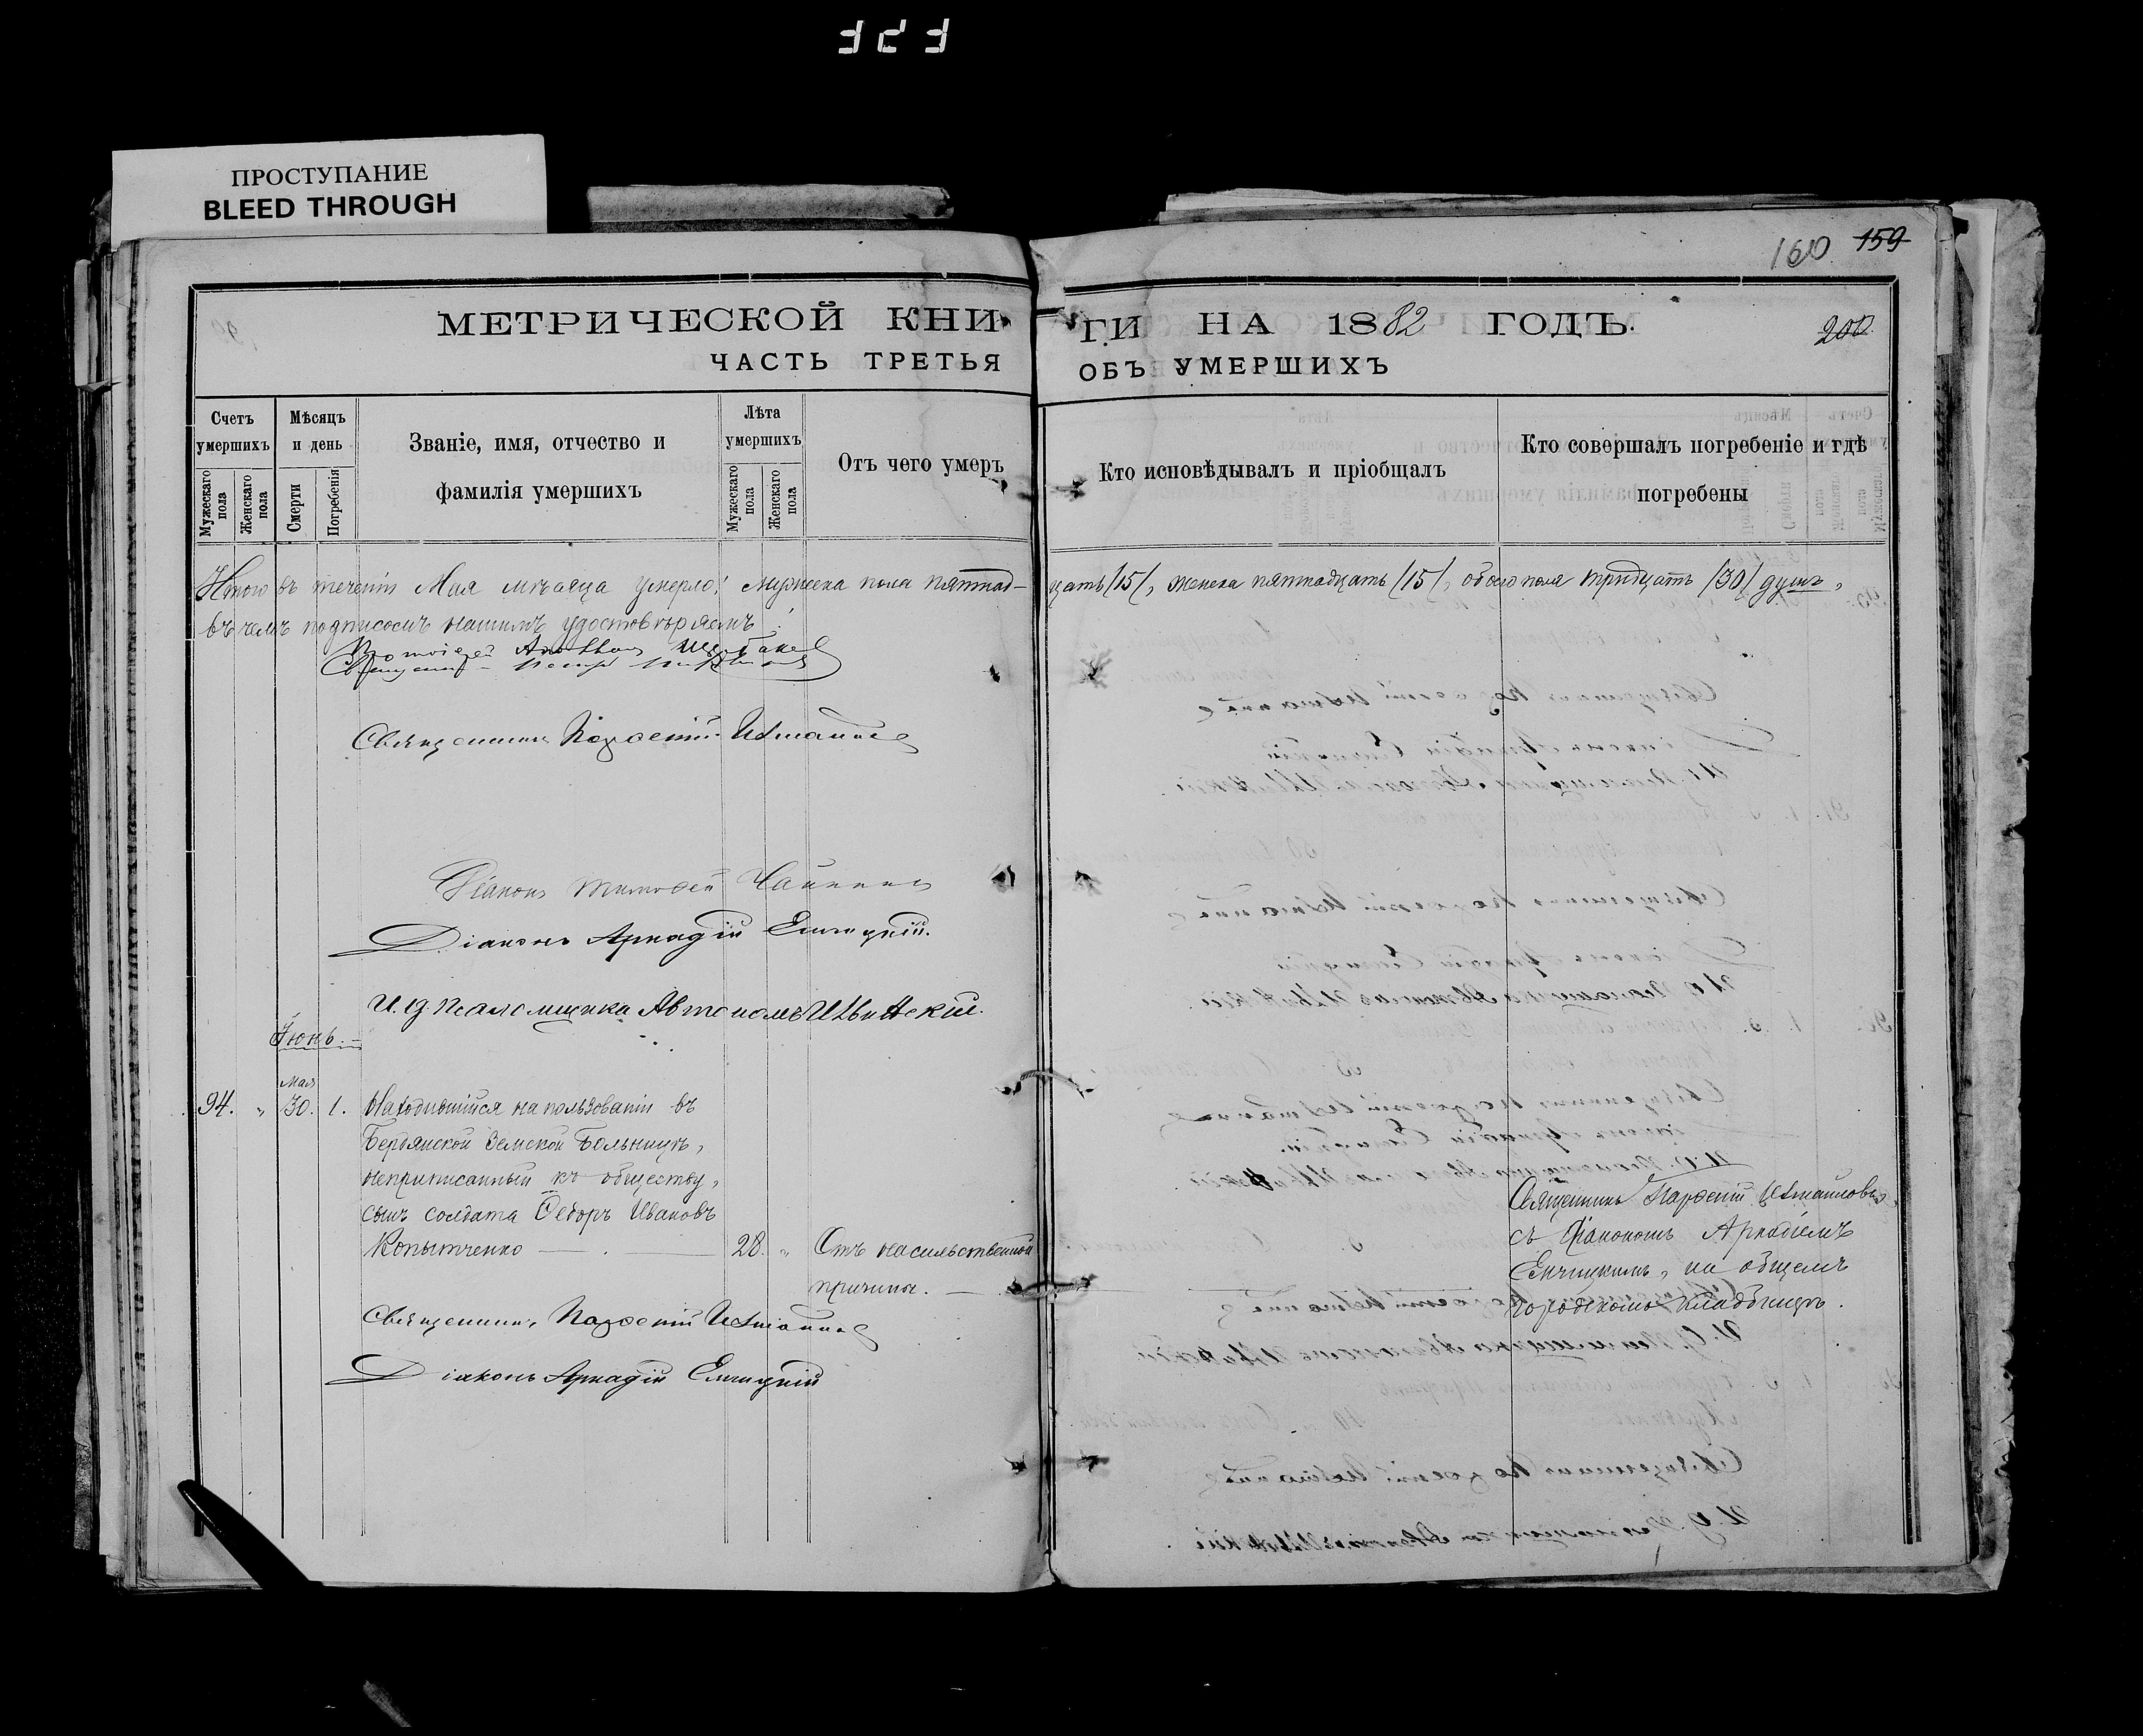 ПРОСТУПАНИЕ
BLEED THROUGH
160 159
МЕТРИЧЕСКОЙ КНИГИ НА 1882 ГОДЪ.
200
ЧАСТЬ ТРЕТЬЯ ОБЪ УМЕРШИХЪ
Счетъ умершихъ
Мужескаго пола
Женскаго пола
Мѣсяцъ и день
Смерти
Погребенія
Званіе, имя, отчество и
фамилія умершихъ
Лѣта умершихъ
Мужескаго пола
Женскаго пола
Отъ чего умеръ
Кто исповѣдывалъ и пріобщалъ
Кто совершалъ погребеніе и гдѣ
погребены
Итого въ теченіи Мая мѣсяца умерло: мужеска пола пятнад-цать /15/, женска пятнадцать /15/, обоего пола тридцать /30/ душъ,
въ чемъ подписомъ нашимъ удостовѣряемъ:
Протоіерей
Священникъ Петръ
Священникъ Парѳеній Измаиловъ
Діаконъ Тимоѳей
Діаконъ Аркадій Енчицкій.
И. д. Псаломщика Автономъ
Іюнь.
Мая
94. " 30. 1. Находившійся на пользованіи въ
Бердянской Земской Больницѣ,
неприписанный къ обществу,
сынъ солдата Ѳедоръ Ивановъ
Копытченко 28. " Отъ насильственной
причины.
Священникъ Парѳеній Измаиловъ
съ Діакономъ Аркадіемъ
Енчицкимъ, на общемъ
городскомъ кладбищѣ.
Священникъ Парѳеній Измаиловъ
Діаконъ Аркадій Енчицкій